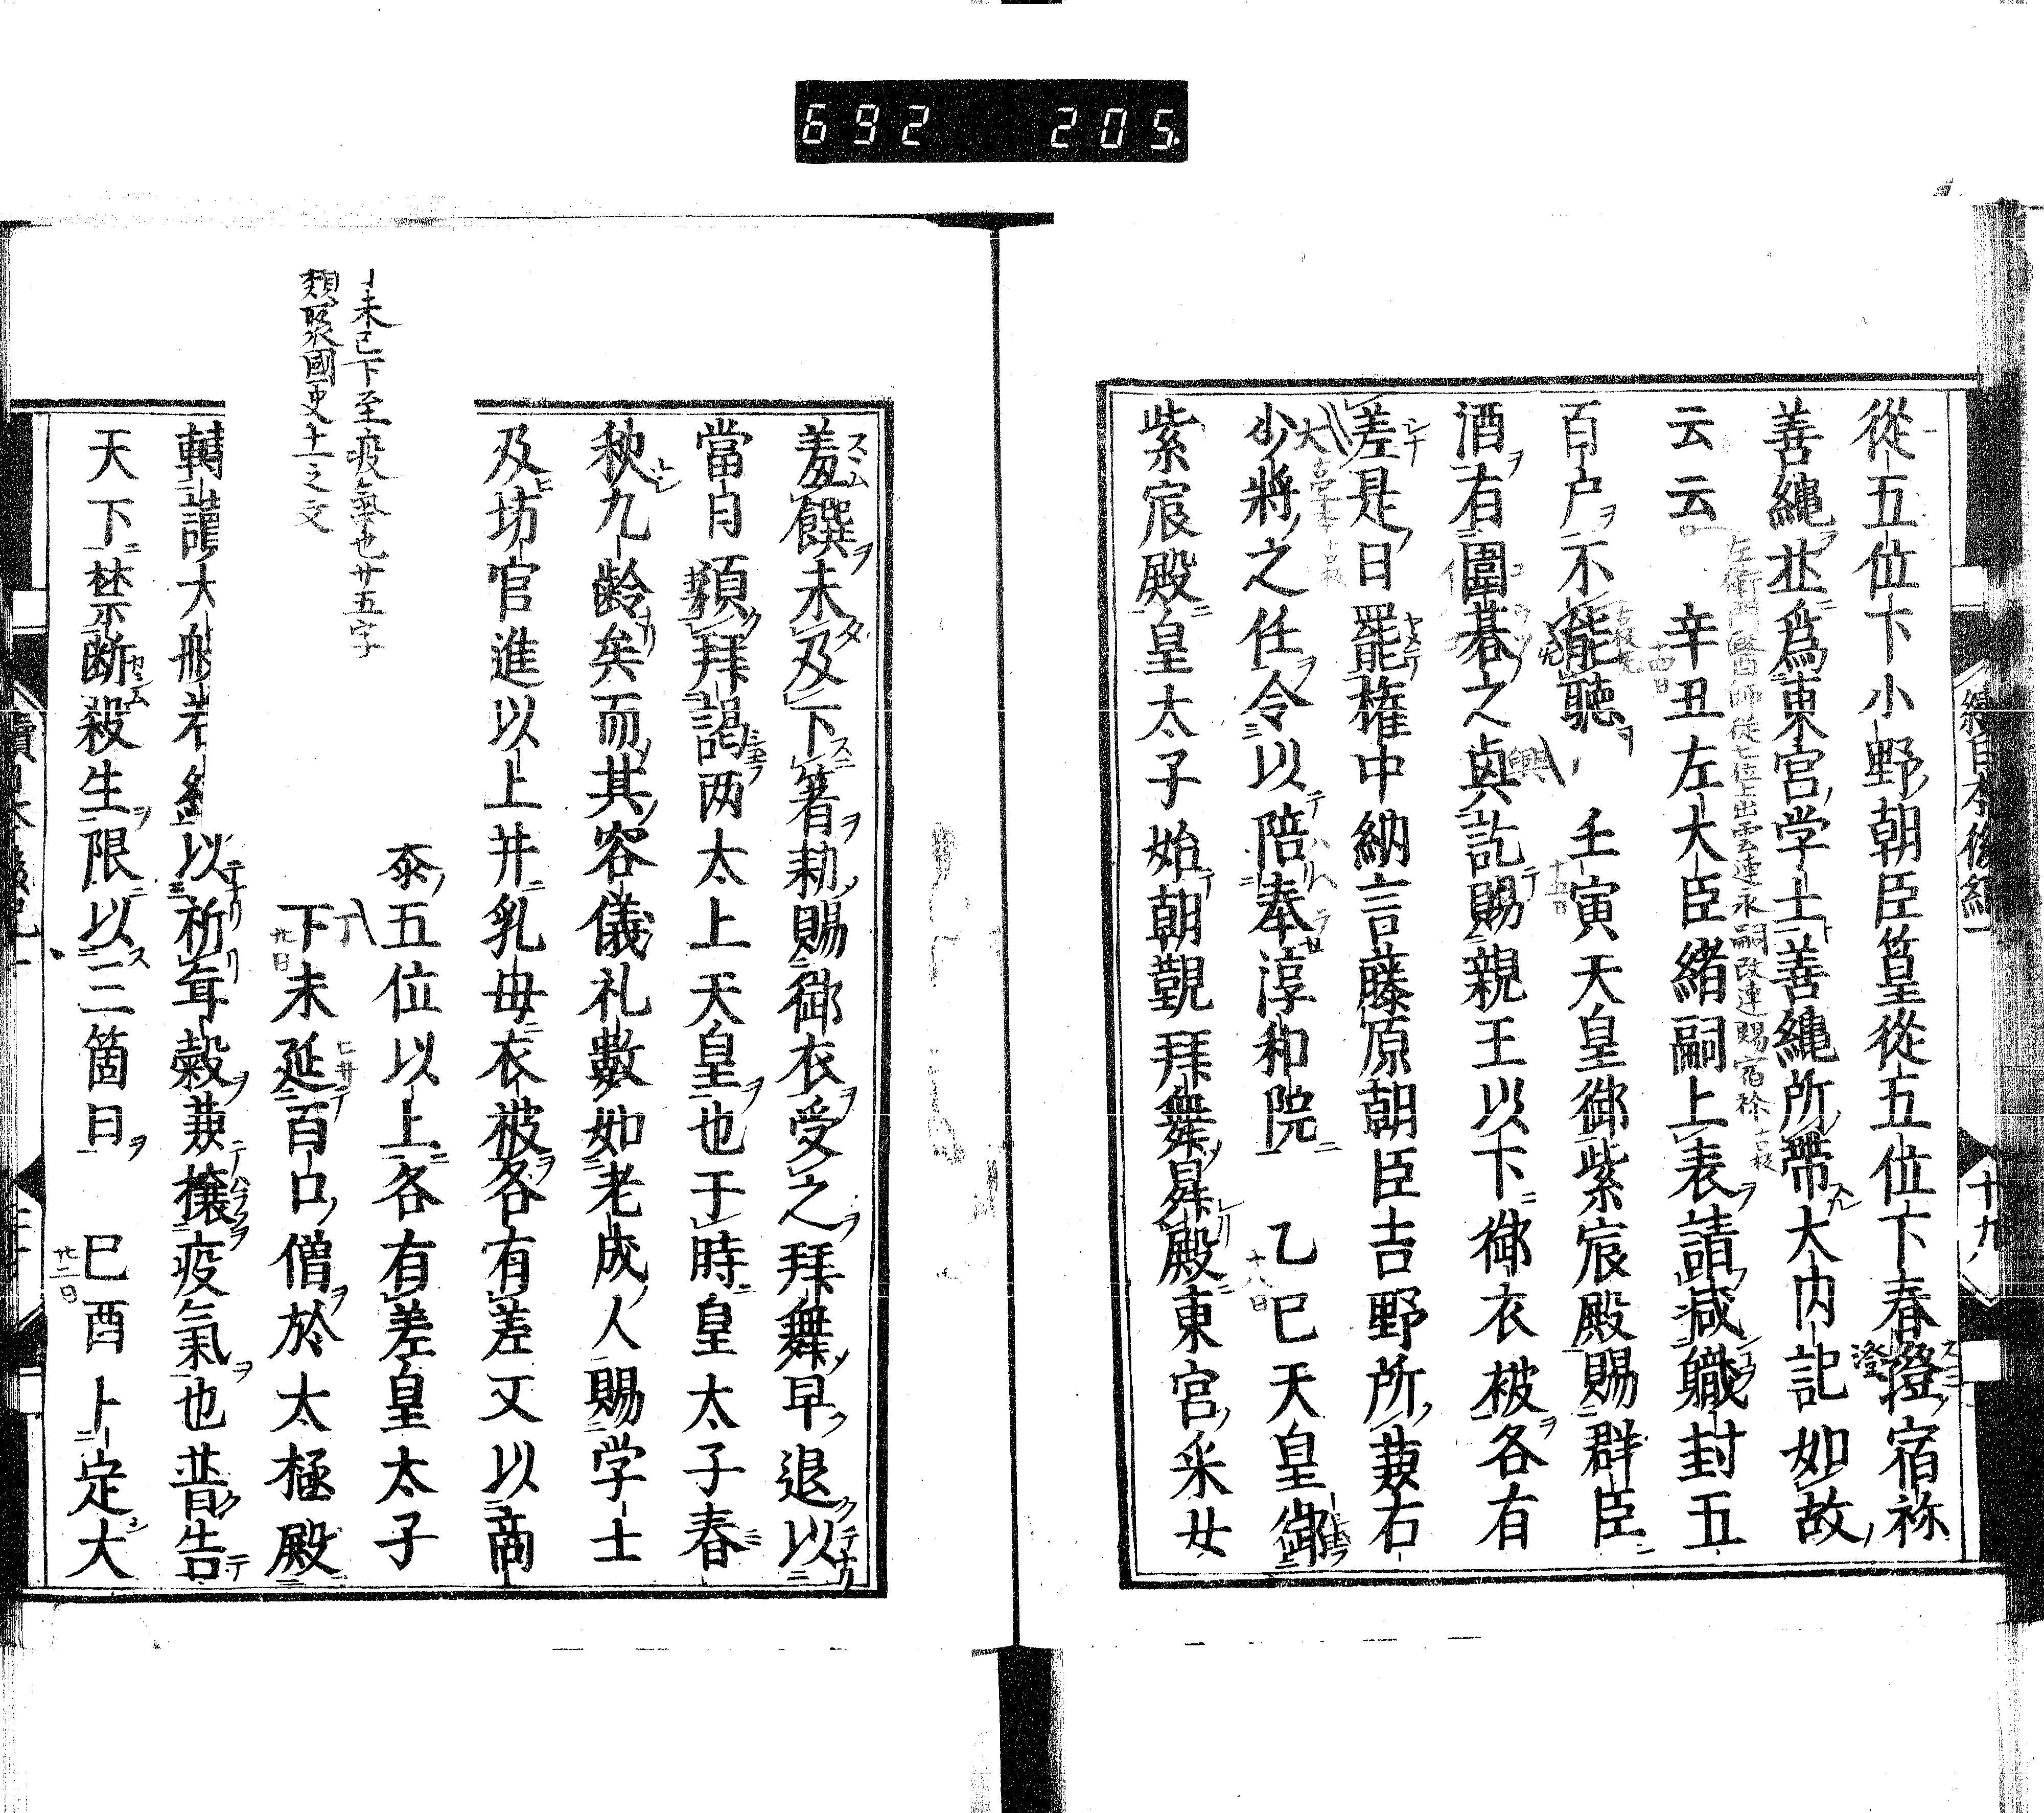 692 205
從五位下小野朝臣篁從五位下春澄宿祢
善繩並爲東宮学士善繩所帶大内記如故
云云 辛丑左大臣緒嗣上表請减職封五
左衛門醫師從七位上出雲連永嗣改連賜宿祢 古板
十四日
百户不能聽 壬寅天皇御紫宸殿賜群臣
十五日
酒有圍碁之興訖賜親王以下御衣被各有
差是日罷權中納言藤原朝臣吉野所兼右
少將之任令以陪奉淳和院 乙巳天皇御
十八日
紫宸殿皇太子始朝覲拜舞昇殿東宮采女
十九
羞饌未及下箸勅賜御衣受之拜舞早退以
當月須拜謁两太上天皇也于時皇太子春
秋九齡矣而其容儀礼數如老成人賜学士
及坊官進以上并乳母衣被各有差又以商
泰五位以上各有差皇太子
下未延百口僧於太極殿
九日
轉讀大般若經以祈年穀兼攘疫氣也普告
天下禁断殺生限以三箇日 巳酉卜定大
廿二日
丁未已下至疫氣也廿五字
類聚國史十一之文